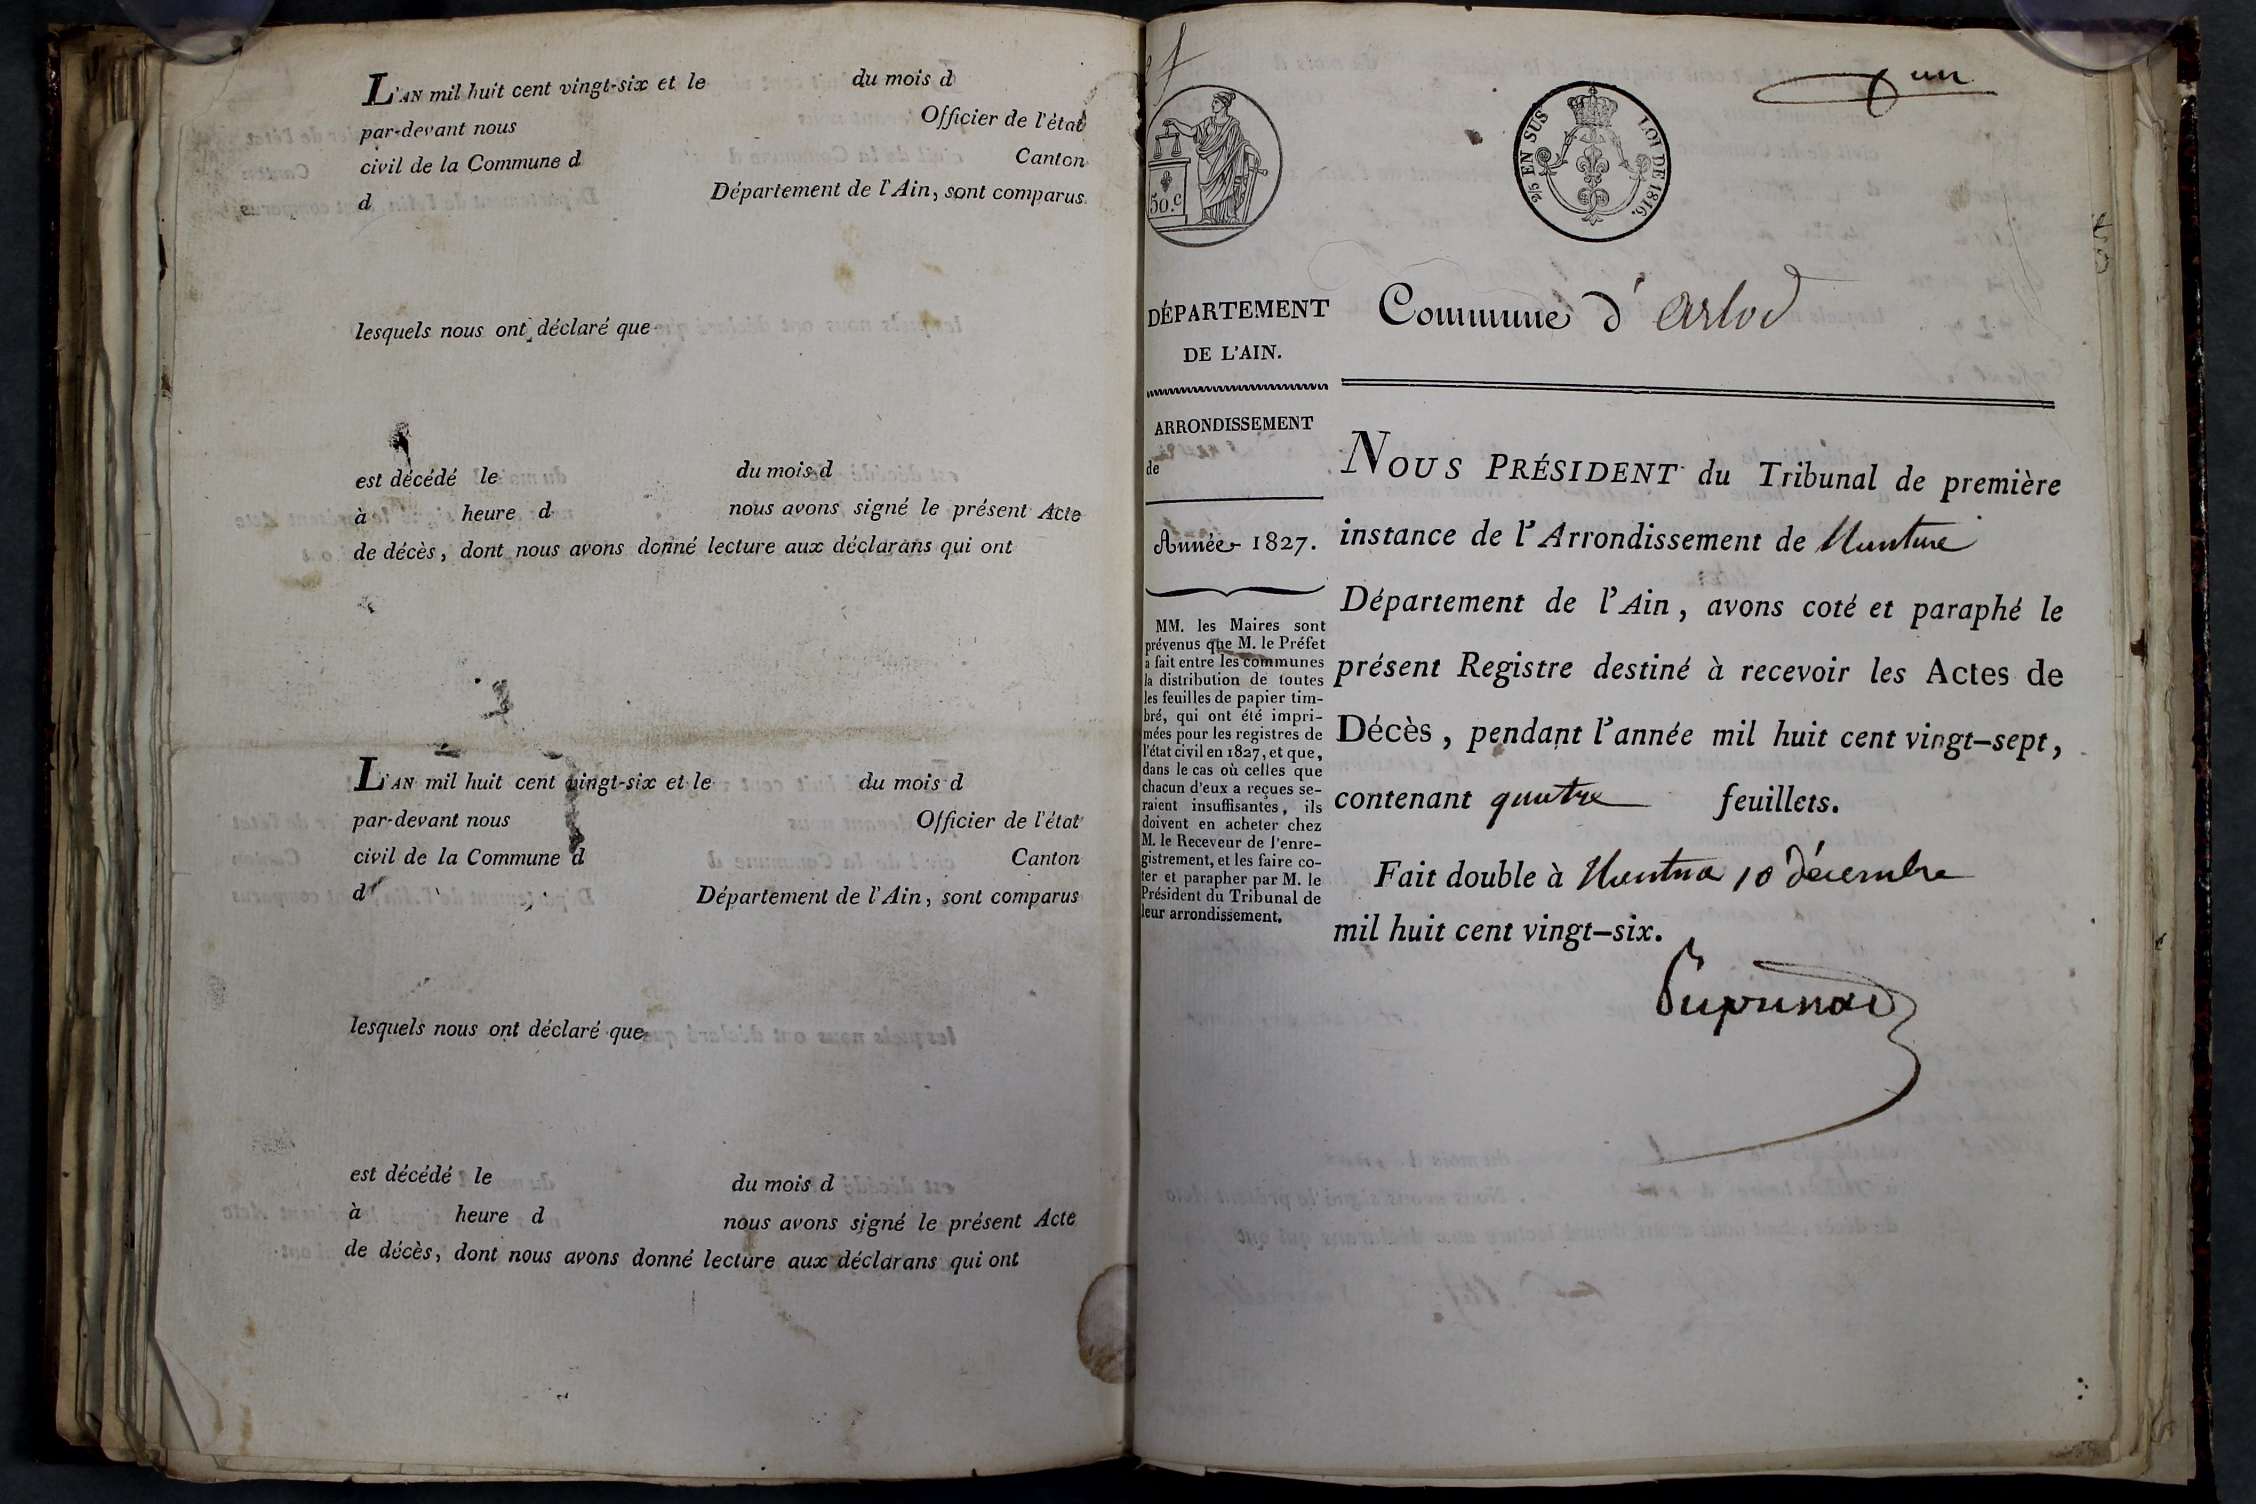 L'AN mil huit cent vingt-six et le du mois d
par-devant nous Officier de l'état
civil de la Commune d Canton
d Département de l'Ain, sont comparus
lesquels nous ont déclaré que
est décédé le du mois d
à heure d nous avons signé le présent Acte
de décès, dont nous avons donné lecture aux déclarans qui ont
L'AN mil huit cent vingt-six et le du mois d
par-devant nous Officier de l'état
civil de la Commune d Canton
d Département de l'Ain, sont comparus
lesquels nous ont déclaré que
est décédé le du mois d
à heure d nous avons signé le présent Acte
de décès, dont nous avons donné lecture aux déclarans qui ont
un
50.c
2/5 EN SUS
LOI DE 1816.
DÉPARTEMENT
DE L'AIN.
ARRONDISSEMENT
de
Année 1827.
MM. les Maires sont
prévenus que M. le Préfet
a fait entre les communes
la distribution de toutes
les feuilles de papier tim-
bré, qui ont été impri-
mées pour les registres de
l'état civil en 1827, et que,
dans le cas où celles que
chacun d'eux a reçues se-
raient insuffisantes, ils
doivent en acheter chez
M. le Receveur de l'enre-
gistrement, et les faire co-
ter et parapher par M. le
Président du Tribunal de
leur arrondissement.
Commune d'arlod
NOUS PRÉSIDENT du Tribunal de première
instance de l'Arrondissement de Nantua
Département de l'Ain, avons coté et paraphé le
présent Registre destiné à recevoir les Actes de
Décès, pendant l'année mil huit cent vingt-sept,
contenant quatre feuillets.
Fait double à Nantua 10 décembre
mil huit cent vingt-six.